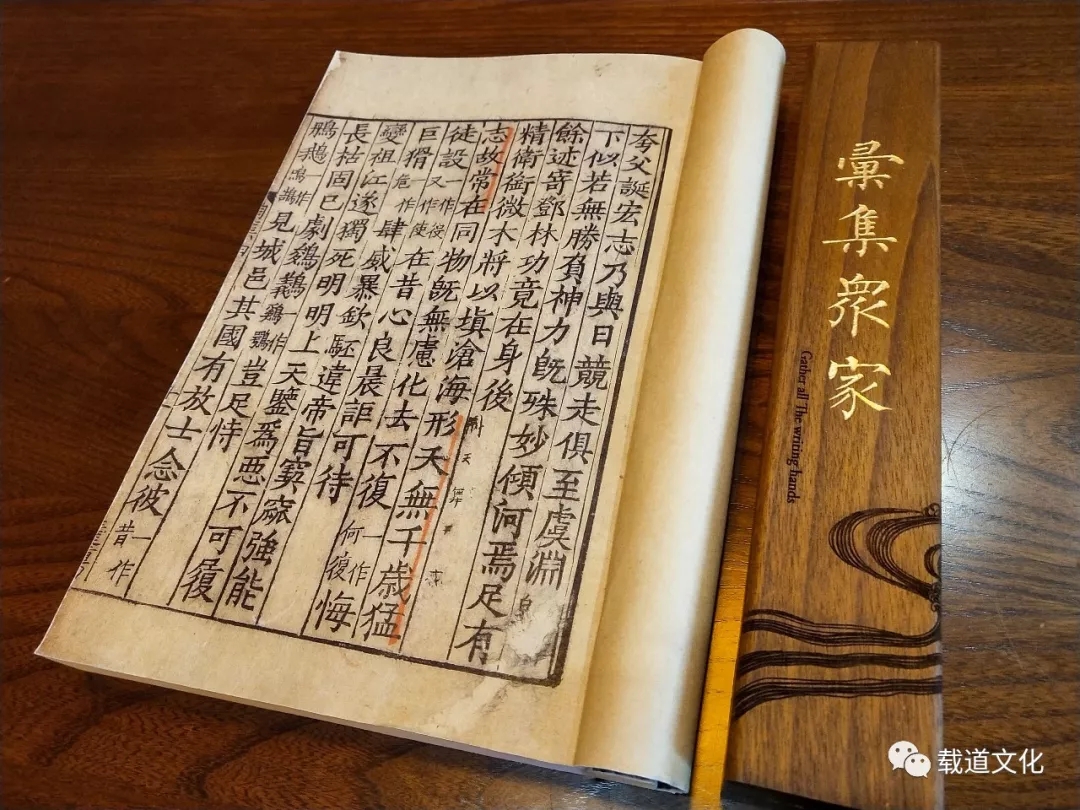 夸父誕宏志乃與日競走俱至虞淵
下似若無勝負神力旣殊妙傾河焉足有
餘迹寄鄧林功竟在身後
精衛銜微木將以塡滄海形天無千歲猛
志故常在同物旣無慮化去不復一作何復悔
徒設在昔心良晨詎可待
巨猾肆威暴欽駓違帝旨窫窳強能
變祖江遂獨死明明上天鑒爲惡不可履
長枯固已劇鵕鶚豈足恃
見城邑其國有放士念彼一作昔
彙集眾家
Gather all The writing hands
载道文化